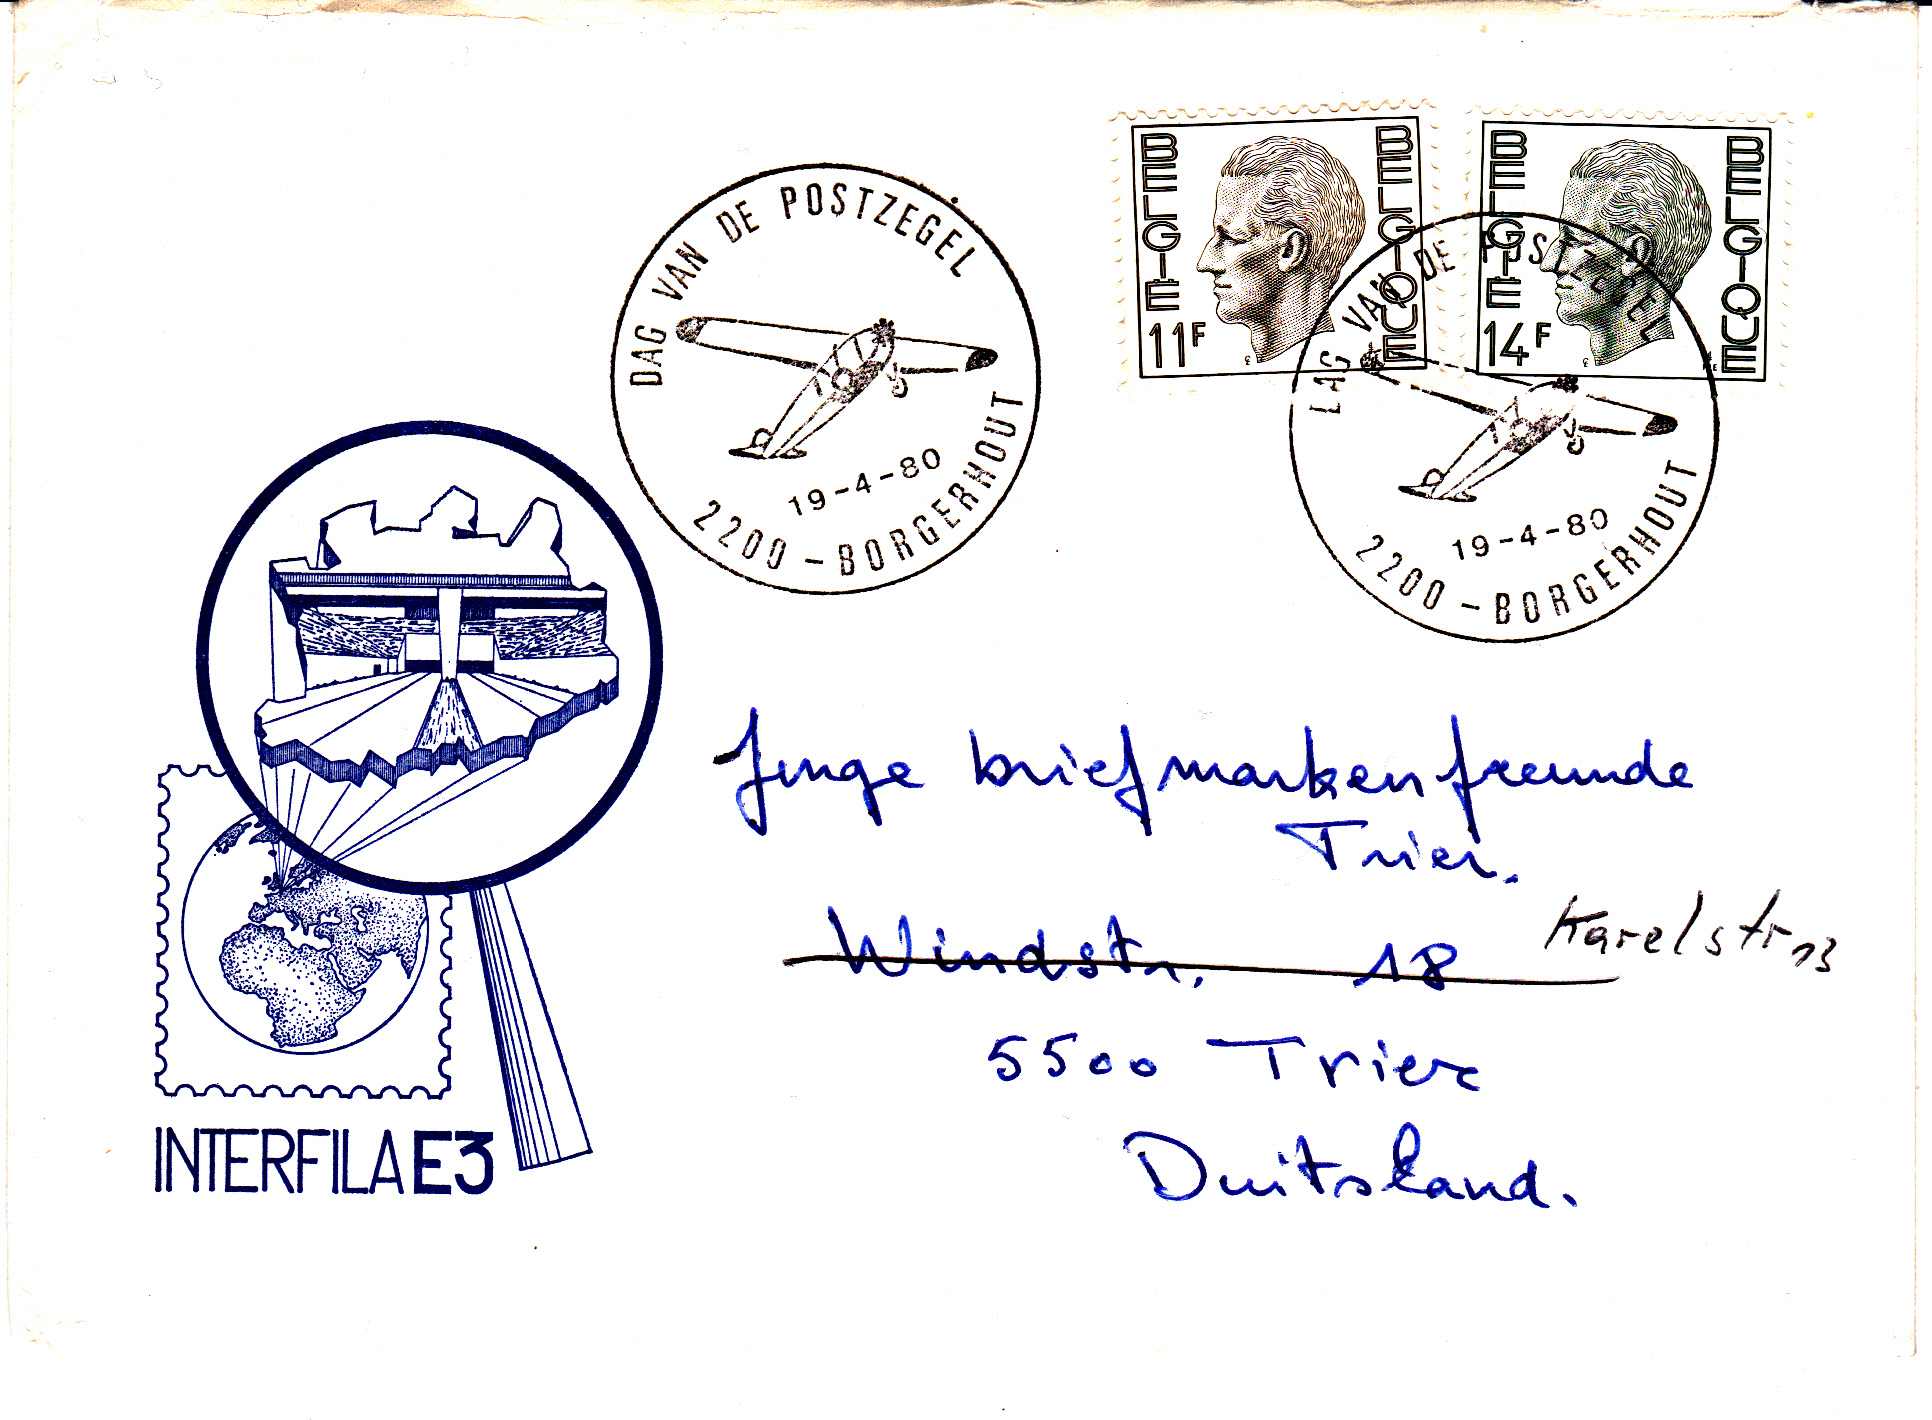 BELGIË BELGIQUE
11F
BELGIË BELGIQUE
14F
DAG VAN DE POSTZEGEL
19-4-80
2200 - BORGERHOUT
DAG VAN DE POSTZEGEL
19-4-80
2200 - BORGERHOUT
Junge briefmarkenfreunde
Trier.
Windstr. 18 Karelstr 13
5500 Trier
Duitsland.
INTERFILA E3